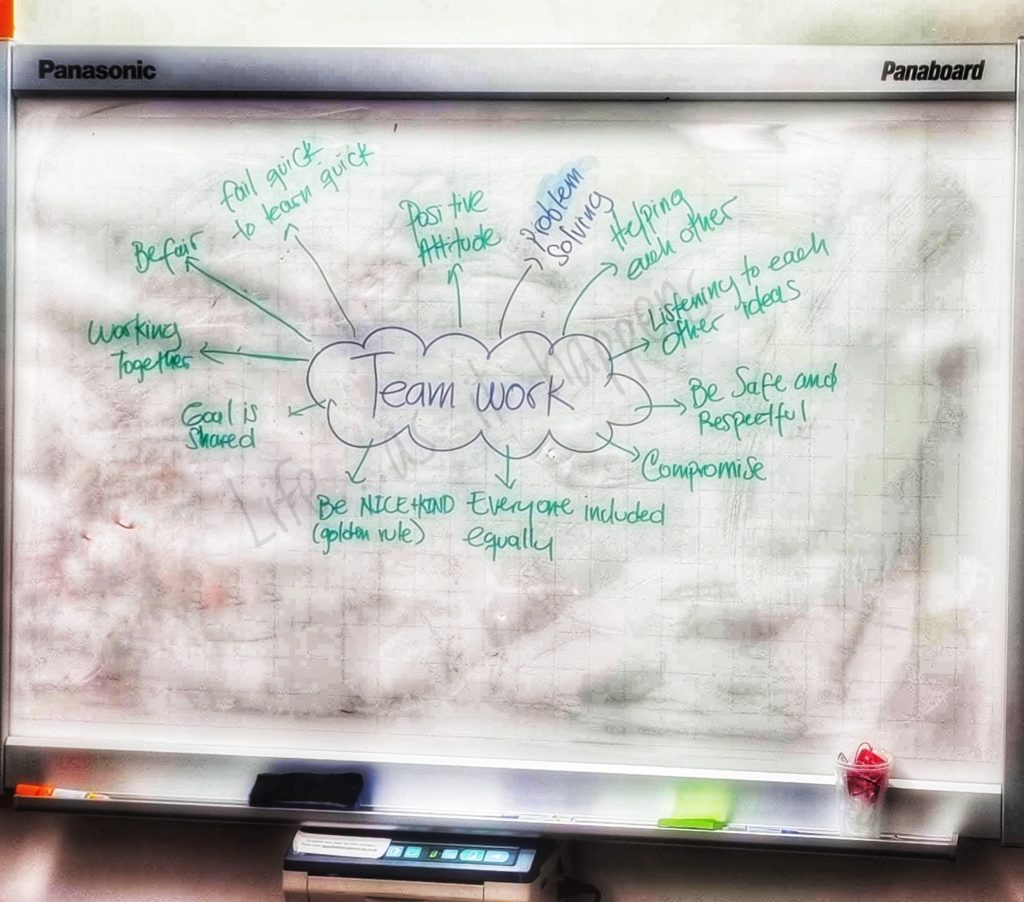 Panasonic
Panaboard
fail quick
to learn quick
Positive
Attitude
Problem
Solving
Helping
each other
Be fair
Listening to each
other ideas
Working
Together
Team work
Be Safe and
Respectful
Goal is
shared
Compromise
Be NICE + KIND
(golden rule)
Everyone included
equally